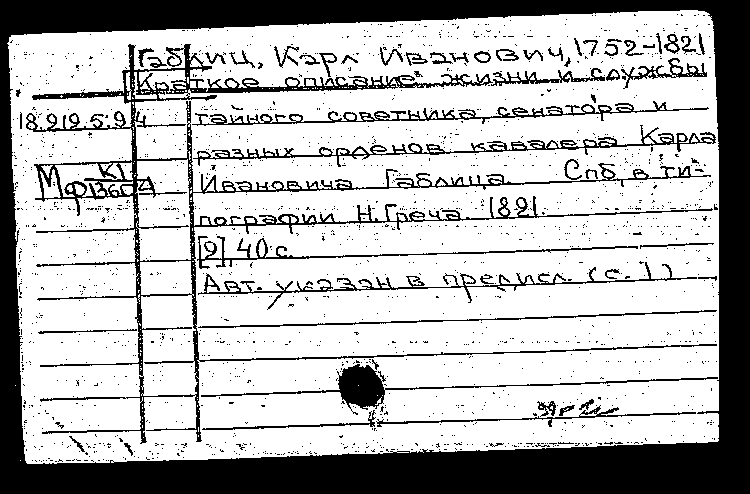 Габлиц, Карл Иванович, 1752-1821
Краткое описание жизни и службы
18.212.5.24 тайного советника, сенатора и
разных орденов кавалера Карла
МФ К1/13604 Ивановича Габлица. Спб, в ти-
пографии Н. Греча. 1821.
[2], 40 с.
Авт. указан в предисл. (с. 1)